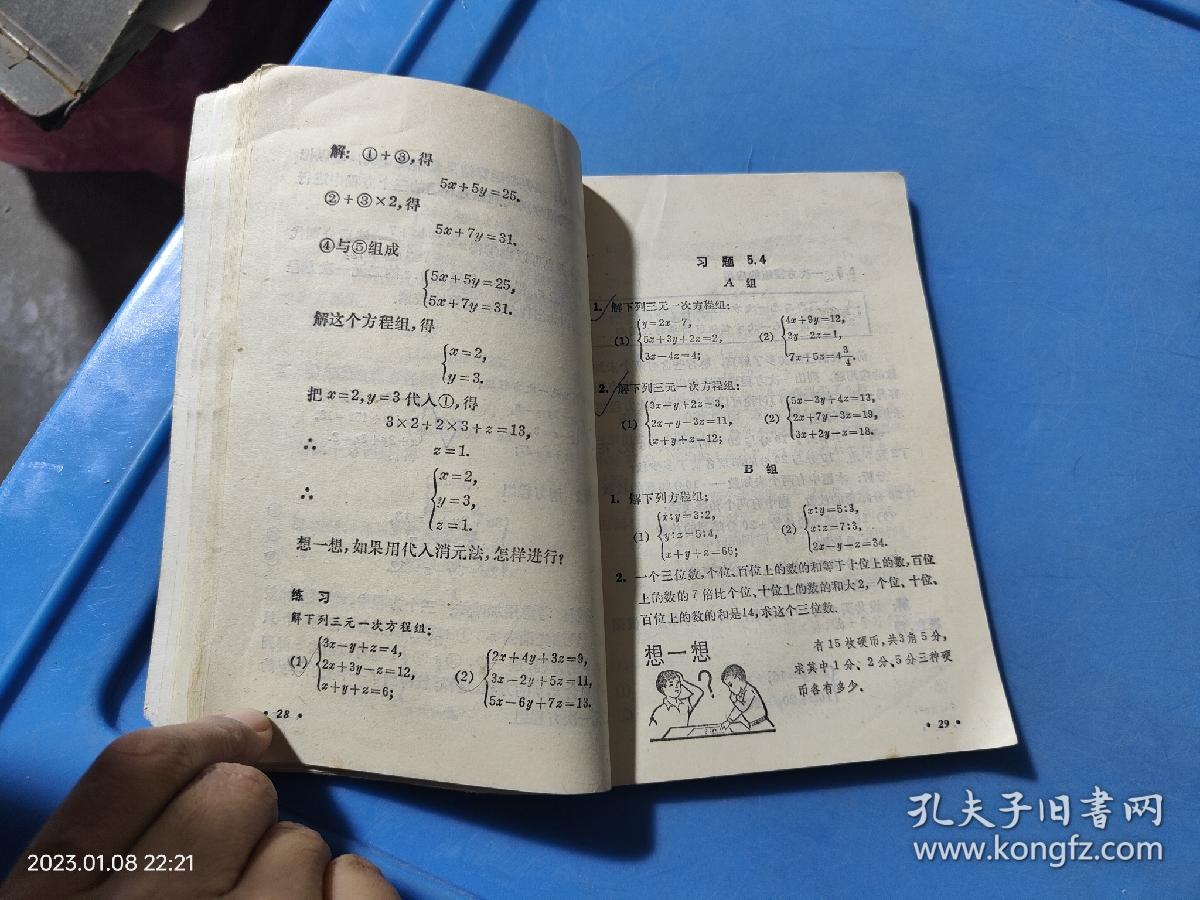 解: ①+③,得
5x+5y=25.
②+③×2,得
5x+7y=31.
④与⑤组成
5x+5y=25,
5x+7y=31.
解这个方程组,得
x=2,
y=3.
把 x=2, y=3 代入①,得
3×2+2×3+z=13,
∴ z=1.
∴
x=2,
y=3,
z=1.
想一想,如果用代入消元法,怎样进行?
练 习
解下列三元一次方程组:
(1)
3x-y+z=4,
2x+3y-z=12,
x+y+z=6;
(2)
2x+4y+3z=9,
3x-2y+5z=11,
5x-6y+7z=13.
• 28 •
习 题 5.4
A 组
1. 解下列三元一次方程组:
(1)
y=2x-7,
5x+3y+2z=2,
3x-4z=4;
(2)
4x+9y=12,
3y-2z=1,
7x+5z=4 3/4.
2. 解下列三元一次方程组:
(1)
3x-y+2z=3,
2x+y-3z=11,
x+y+z=12;
(2)
5x-3y+4z=13,
2x+7y-3z=19,
3x+2y-z=18.
B 组
1. 解下列方程组:
(1)
x:y=3:2,
y:z=5:4,
x+y+z=66;
(2)
x:y=5:3,
x:z=7:3,
2x-y-z=34.
2. 一个三位数,个位、百位上的数的和等于十位上的数,百位
上的数的7倍比个位、十位上的数的和大2, 个位、十位、
百位上的数的和是14,求这个三位数.
想一想
?
有15枚硬币,共3角5分,
求其中1分、2分、5分三种硬
币各有多少.
• 29 •
2023.01.08 22:21
孔夫子旧書网
www.kongfz.com